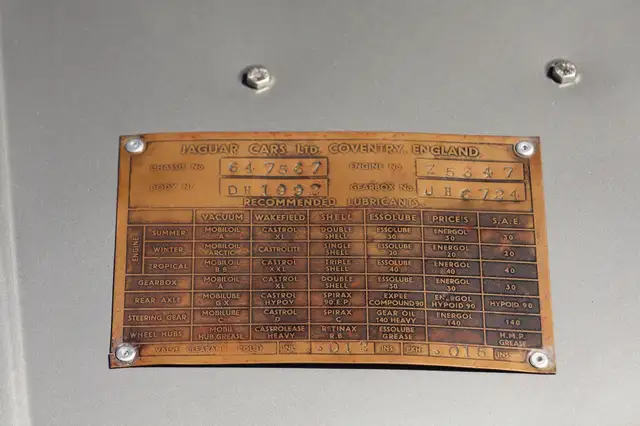 JAGUAR CARS, LTD. COVENTRY, ENGLAND.
CHASSIS NO. 647567 ENGINE NO. Z5347
BODY No. GEARBOX No. JH6724
RECOMMENDED LUBRICANTS.
VACUUM WAKEFIELD SHELL ESSOLUBE PRICE'S S.A.E.
ENGINE
SUMMER MOBILOIL A CASTROL XL DOUBLE SHELL ESSOLUBE 30 ENERGOL 30 30
WINTER MOBILOIL ARCTIC CASTROLITE SINGLE SHELL ESSOLUBE 20 ENERGOL 20 20
TROPICAL MOBILOIL B.B. CASTROL XXL TRIPLE SHELL ESSOLUBE 40 ENERGOL 40 40
GEARBOX MOBILOIL A CASTROL XL DOUBLE SHELL ESSOLUBE 30 ENERGOL 30 30
REAR AXLE MOBILUBE G.X CASTROL HYPOY SPIRAX 90.E.P. EXPEE COMPOUND 90 ENERGOL HYPOID 90 HYPOID 90
STEERING GEAR MOBILUBE C CASTROL D SPIRAX C GEAR OIL 140 HEAVY ENERGOL 140 140
WHEEL HUBS MOBIL HUB GREASE CASTROLEASE HEAVY RETINAX R.B. ESSOLUBE GREASE H.M.P. GREASE
VALVE CLEARANCE (COLD) INL INS EXH INS